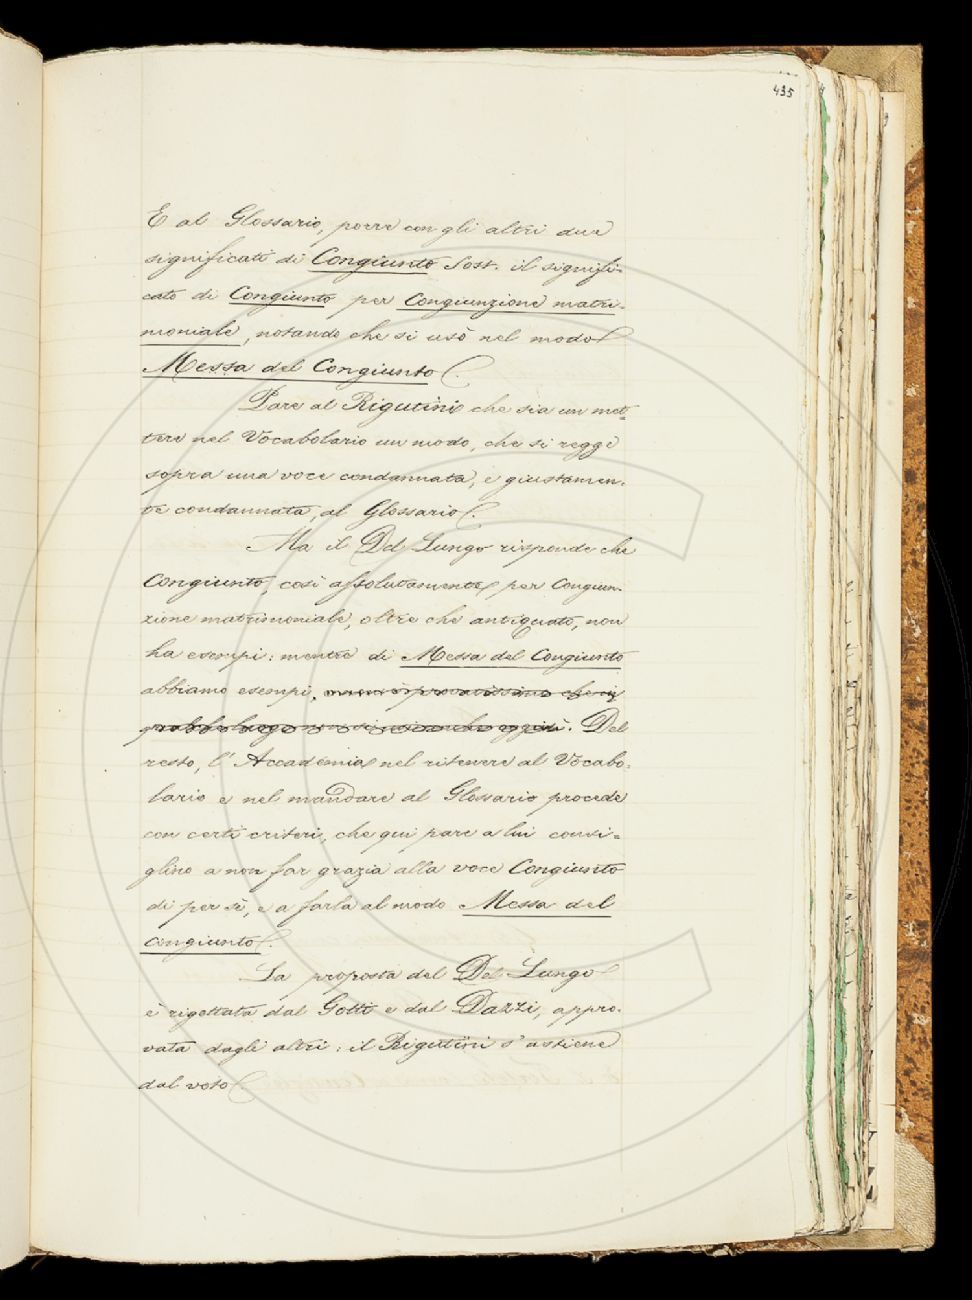 435
E al Glossario, porre con gli altri due
significati di Congiunto Sost. il signifi-
cato di Congiunto per Congiunzione matri-
moniale, notando che si usò nel modo
Messa del Congiunto.
Pare al Rigutini che sia un met-
tere nel Vocabolario un modo, che si regge
sopra una voce condannata, e giustamen-
te condannata, al Glossario.
Ma il Del Lungo risponde che
Congiunto, così assolutamente per Congiun-
zione matrimoniale, oltre che antiquato, non
ha esempi: mentre di Messa del Congiunto
abbiamo esempi,
. Del
resto, l'Accademia nel ritenere al Vocabo-
lario e nel mandare al Glossario procede
con certi criteri, che qui pare a lui consi-
glino a non far grazia alla voce Congiunto
di per sè, e a farla al modo Messa del
Congiunto.
La proposta del Del Lungo
è rigettata dal Gotti e dal Dazzi, appro-
vata dagli altri: il Rigutini s'astiene
dal voto.